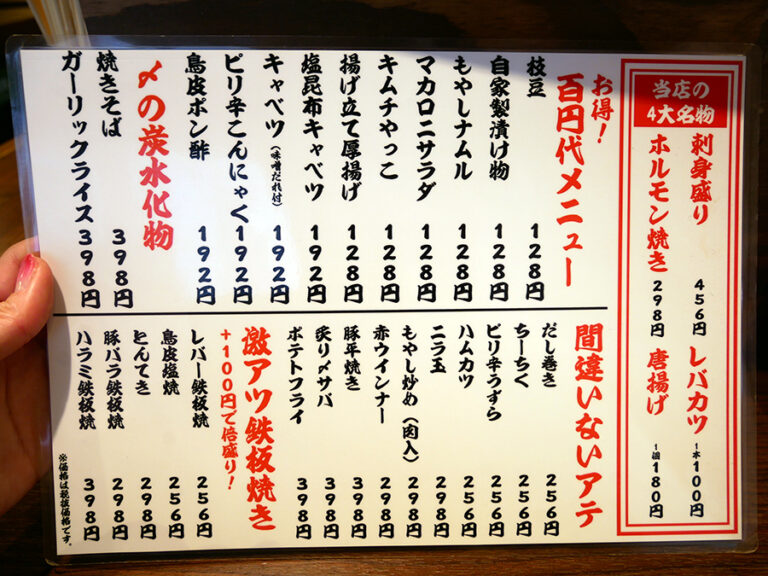 当店の
4大名物
刺身盛り 456円
レバカツ 1本100円
ホルモン焼き 298円
唐揚げ 1個180円
お得!
百円代メニュー
枝豆 128円
自家製漬け物 128円
もやしナムル 128円
マカロニサラダ 128円
キムチやっこ 128円
揚げ立て厚揚げ 128円
塩昆布キャベツ 192円
キャベツ(味噌だれ付) 192円
ピリ辛こんにゃく 192円
鳥皮ポン酢 192円
〆の炭水化物
焼きそば 398円
ガーリックライス 398円
間違いないアテ
だし巻き 256円
ちーちく 256円
ピリ辛うずら 256円
ハムカツ 256円
ニラ玉 298円
もやし炒め(肉入) 298円
赤ウインナー 298円
豚平焼き 398円
炙り〆サバ 398円
ポテトフライ 398円
激アツ鉄板焼き
+100円で倍盛り!
レバー鉄板焼 256円
鳥皮塩焼 256円
とんてき 298円
豚バラ鉄板焼 298円
ハラミ鉄板焼 398円
※価格は税抜価格です。